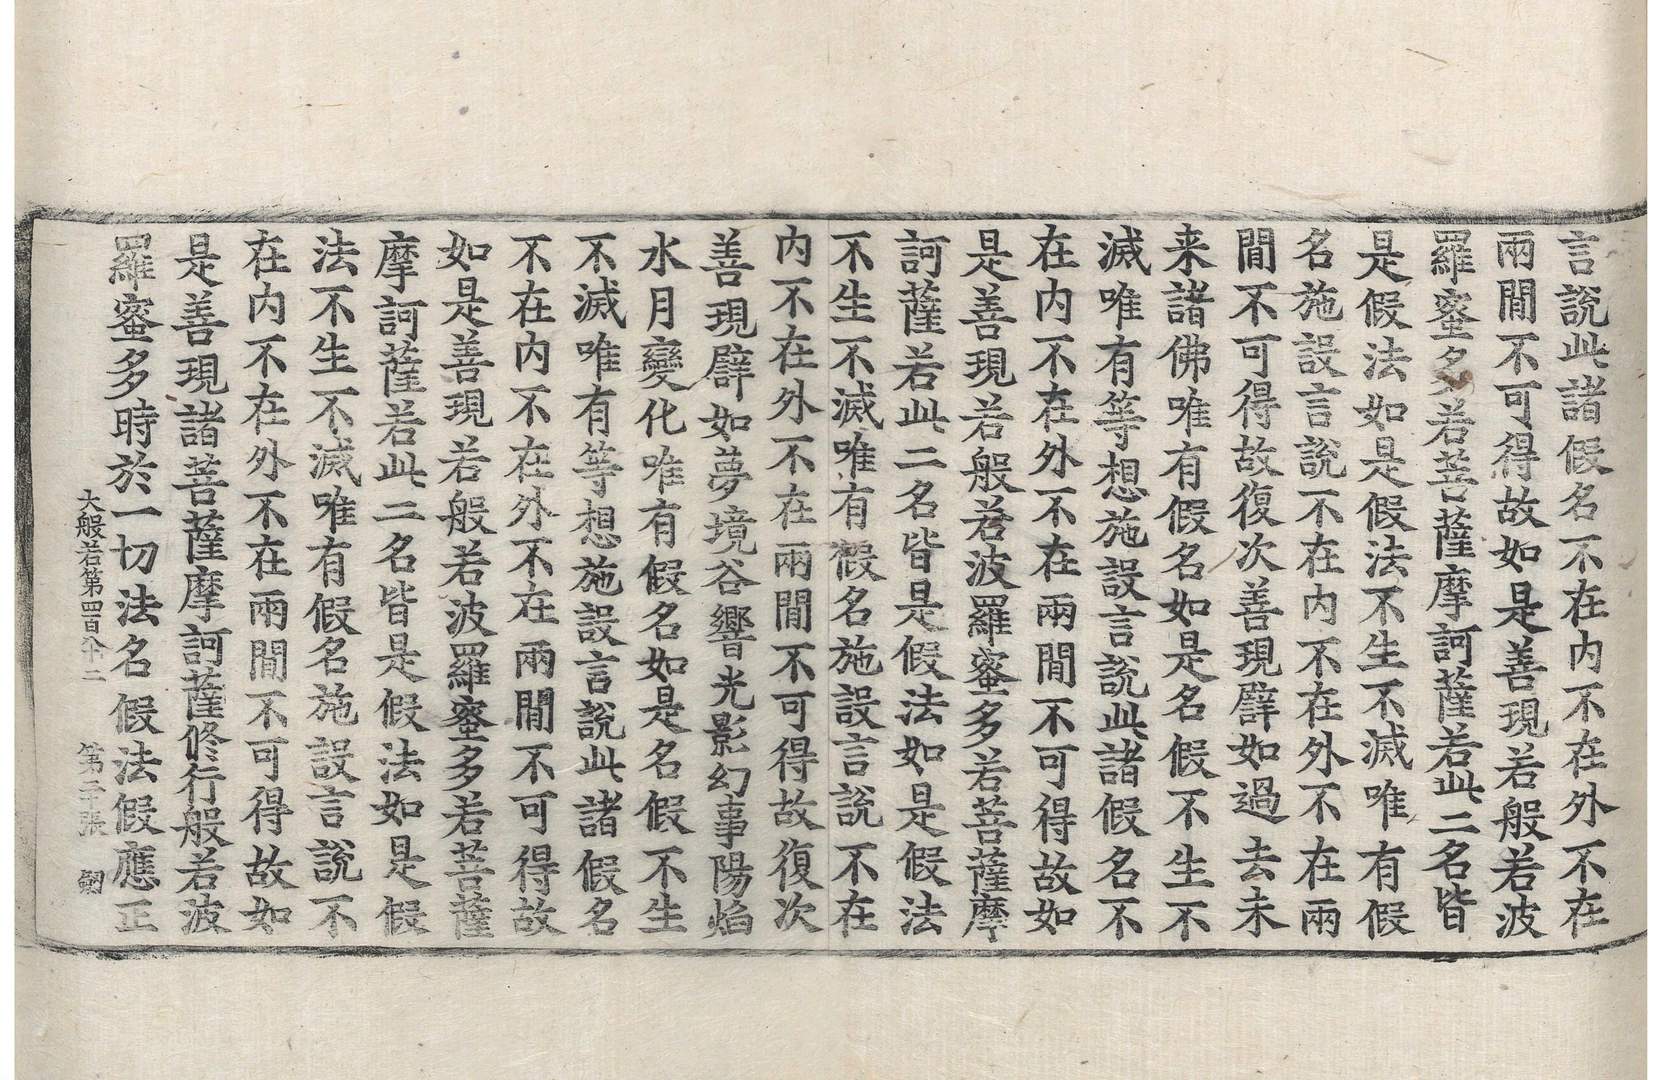 言說此諸假名不在内不在外不在
兩閒不可得故如是善現若般若波
羅蜜多若菩薩摩訶薩若此二名皆
是假法如是假法不生不滅唯有假
名施設言說不在内不在外不在兩
閒不可得故復次善現譬如過去未
来諸佛唯有假名如是名假不生不
滅唯有等想施設言說此諸假名不
在内不在外不在兩閒不可得故如
是善現若般若波羅蜜多若菩薩摩
訶薩若此二名皆是假法如是假法
不生不滅唯有假名施設言說不在
内不在外不在兩閒不可得故復次
善現譬如夢境谷響光影幻事陽焰
水月變化唯有假名如是名假不生
不滅唯有等想施設言說此諸假名
不在内不在外不在兩閒不可得故
如是善現若般若波羅蜜多若菩薩
摩訶薩若此二名皆是假法如是假
法不生不滅唯有假名施設言說不
在内不在外不在兩閒不可得故如
是善現諸菩薩摩訶薩修行般若波
羅蜜多時於一切法名假法假應正
大般若第四百八十二 第二十張 劒